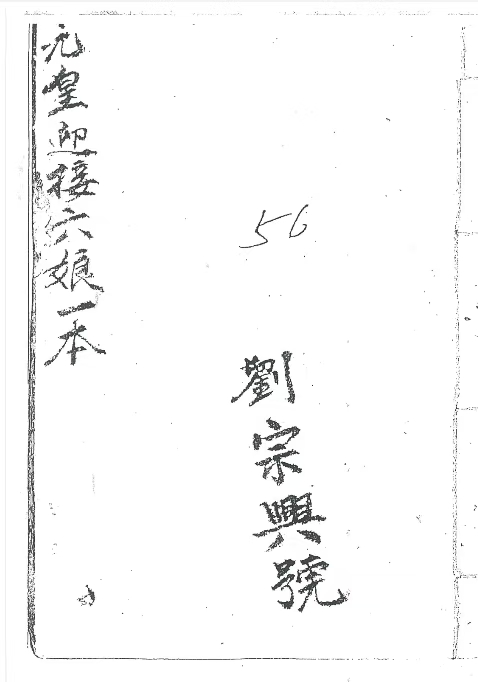 元皇迎接六娘一本
56
劉宗興號